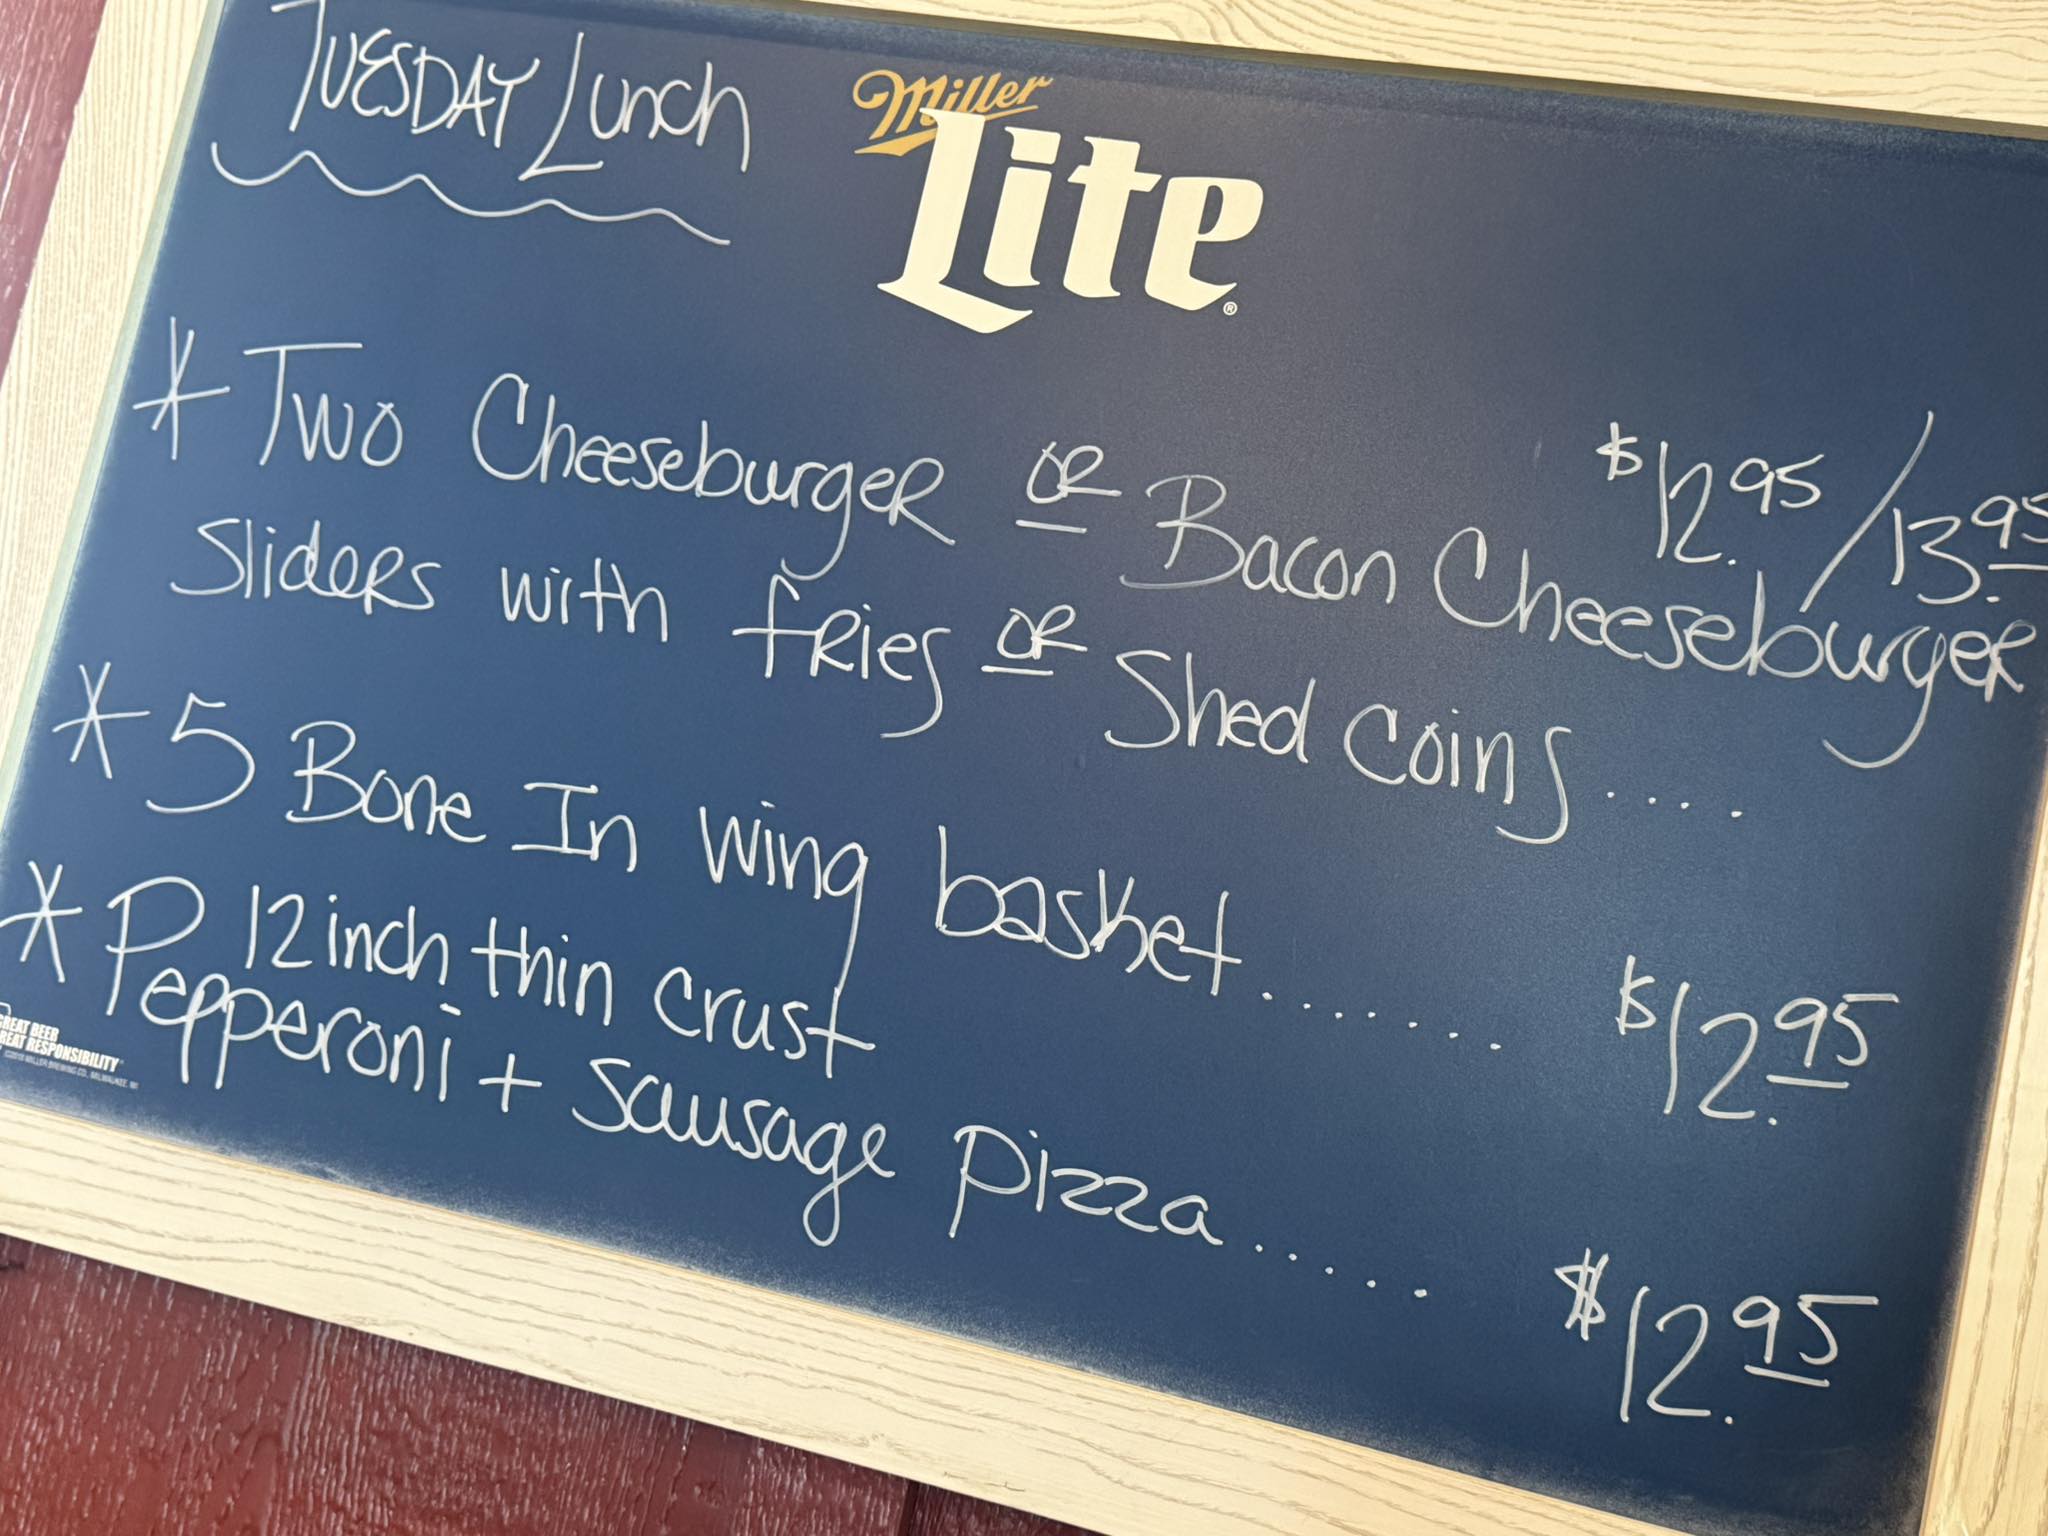 TUESDAY Lunch
Miller
Lite®
$12.95/13.95
* Two Cheeseburger OR Bacon Cheeseburger
Sliders with fries OR Shed Coins....
* 5 Bone In wing basket....... $12.95
12 inch thin crust
* Pepperoni + sausage pizza..... $12.95
GREAT BEER
GREAT RESPONSIBILITY®
MILLER BREWING CO., MILWAUKEE, WI